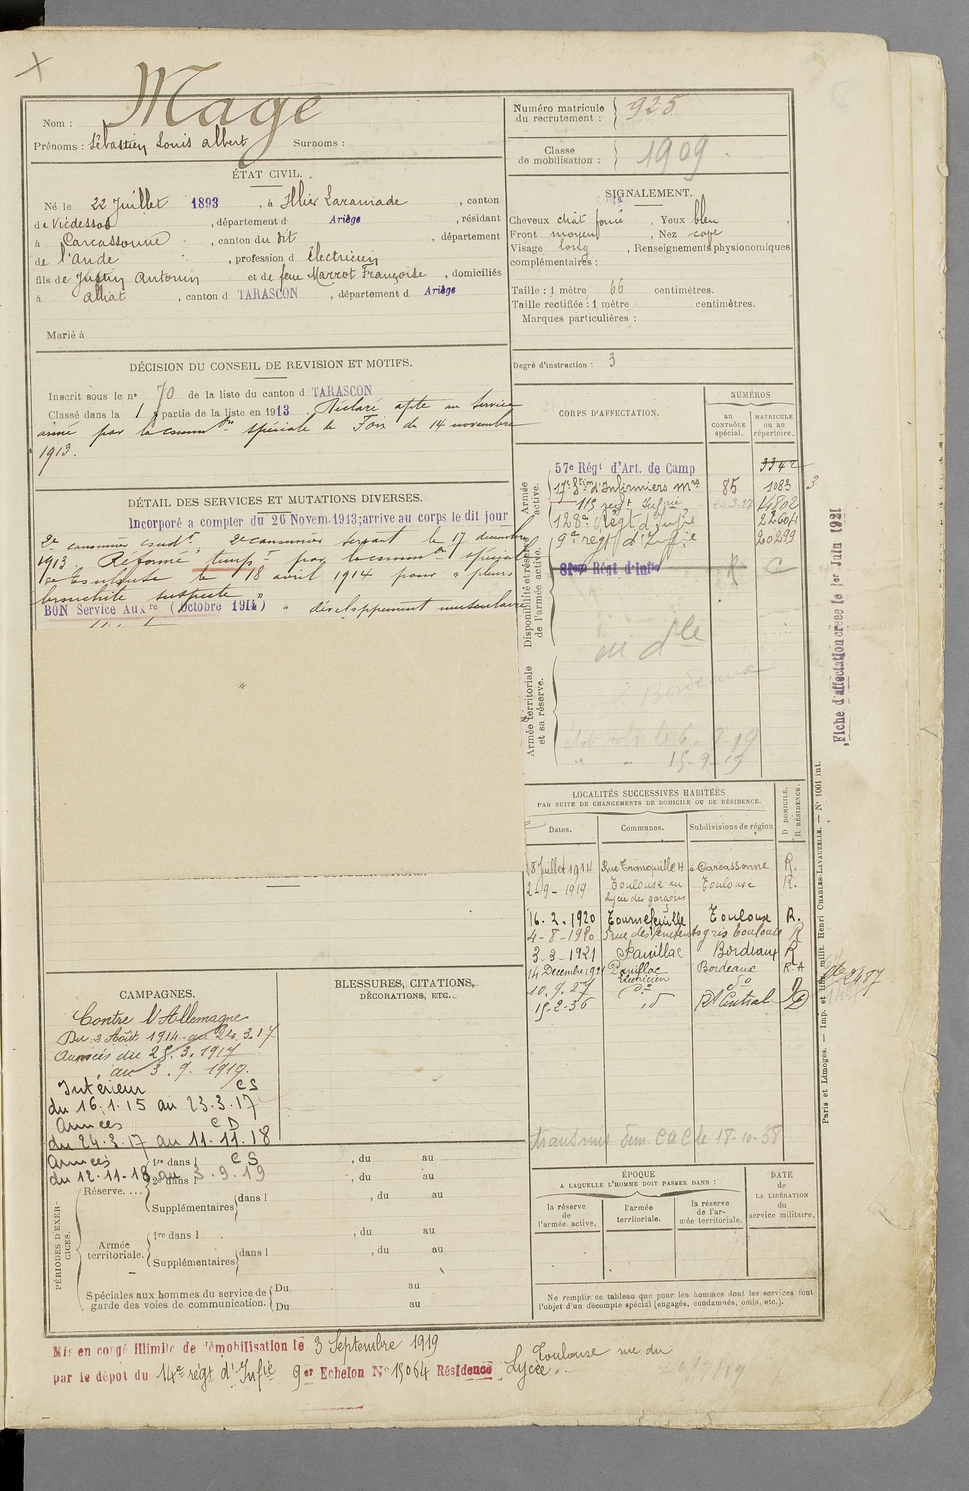 Mage
Nom :
Prénoms : Sébastien Louis Albert Surnoms :
Numéro matricule du recrutement : 925
Classe de mobilisation : 1909
ÉTAT CIVIL.
Né le 22 Juillet 1893, à Illier Laramade, canton
de Vicdessos, département d Ariège, résidant
à Carcassonne, canton du dit, département
de l'Aude, profession d électricien
fils de Justin Antonin et de feue Marrot Françoise, domiciliés
à Alliat, canton d TARASCON, département d Ariège
Marié à
SIGNALEMENT.
Cheveux chât foncé, Yeux bleu,
Front moyen, Nez
Visage long, Renseignements physionomiques
complémentaires :
Taille : 1 mètre 66 centimètres.
Taille rectifiée : 1 mètre centimètres.
Marques particulières :
Degré d'instruction : 3
DÉCISION DU CONSEIL DE REVISION ET MOTIFS.
Inscrit sous le n° 70 de la liste du canton d TARASCON
Classé dans la 1 partie de la liste en 1913. Déclaré apte au service
armé par la comm on spéciale de Foix du 14 novembre
1913.
DÉTAIL DES SERVICES ET MUTATIONS DIVERSES.
Incorporé à compter du 26 Novem. 1913; arrivé au corps le dit jour
2e canonnier cond t, 2e canonnier servant le 17 décembre
1913 Réformé temp t par la comm on spéciale
de Toulouse le 18 avril 1914 pour " pleuro
bronchite suspecte "
BON Service Aux re (Octobre 1914) " développement musculaire
CORPS D'AFFECTATION.
NUMÉROS
au CONTRÔLE spécial.
MATRICULE ou au répertoire.
Armée active.
57e Régt d'Art. de Camp 3342
17e S tion d'Infirmiers M res 85 1083
113 régt Infrie 4802
123e Régt d'Infie 22604
9e régt d'Infie 20299
Disponibilité et réserve de l'armée active.
81ème Régt d'Infie R C
Armée territoriale et sa réserve.
Bordeaux
15-9-19
Fiche d'affectation créée le 1er Juin 1921
LOCALITÉS SUCCESSIVES HABITÉES
PAR SUITE DE CHANGEMENTS DE DOMICILE OU DE RÉSIDENCE.
Dates. Communes. Subdivisions de région D DOMICILE. R RÉSIDENCE.
8 Juillet 1914 Rue Tranquille 4 à Carcassonne R.
2-9-1919 Toulouse au Lycée des garçons Toulouse R.
16.2.1920 Tournefeuille Toulouse R.
4-8-1920 5 rue des Pénitents gris Toulouse R
3-3-1921 Pauillac Bordeaux R
14 Décembre 1921 Pauillac électricien Bordeaux R.A
10.9.27 do do D
15-2-36 d° Rt Central D
2487
transmis Dem. C a C le 18-10-38
CAMPAGNES.
Contre l'Allemagne
Du 2 Août 1914 au 24.3.17
Armées du 25.3.1917
au 3.9.1919.
Intérieur CS
du 16.1.15 au 23.3.17
Armées CD
du 24.3.17 au 11.11.18
Armées CS
du 12.11.18 au 3.9.19
BLESSURES, CITATIONS,
DÉCORATIONS, ETC.
PÉRIODES D'EXERCICES.
Réserve....
1re dans l , du au
2e dans l , du au
Supplémentaires dans l , du au
Armée territoriale.
1re dans l , du au
Supplémentaires dans l , du au
Spéciales aux hommes du service de garde des voies de communication.
Du au
Du au
ÉPOQUE
A LAQUELLE L'HOMME DOIT PASSER DANS :
la réserve de l'armée active.
l'armée territoriale.
la réserve de l'armée territoriale.
DATE de LA LIBÉRATION du service militaire.
Ne remplir ce tableau que pour les hommes dont les services font
l'objet d'un décompte spécial (engagés, condamnés, omis, etc.).
Paris et Limoges. — Imp. et lib. milit. Henri CHARLES-LAVAUZELLE. — N° 1001 int.
Mis en congé illimité de démobilisation le 3 Septembre 1919
par le dépôt du 14e régt d'Infie 9er Echelon N° 15064 Résidence Toulouse rue du
Lycée.